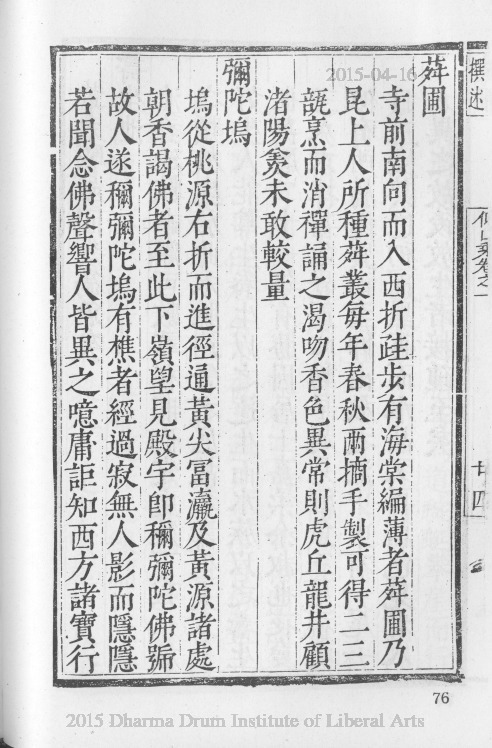 撰述
仰山乘卷之一
廿四
荈圃
寺前南向而入西折跬步有海棠編薄者荈圃乃
昆上人所種荈叢每年春秋兩摘手製可得二三
瓻烹而消禪誦之渴吻香色異常則虎丘龍井顧
渚陽羨未敢較量
彌陀塢
塢從桃源右折而進徑通黃尖冨瀛及黃源諸處
朝香謁佛者至此下嶺望見殿宇卽稱彌陀佛號
故人遂稱彌陀塢有樵者經過寂無人影而隱隱
若聞念佛聲響人皆異之噫庸詎知西方諸寶行
76
2015-04-16
2015 Dharma Drum Institute of Liberal Arts